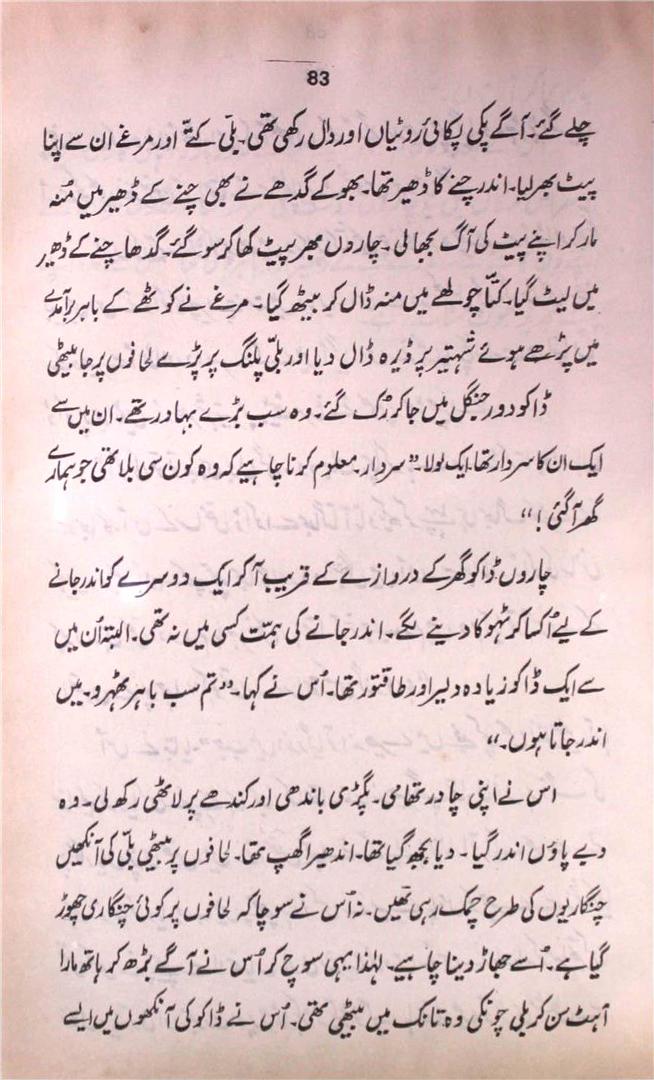 83
چلے گئے۔ آگے پکی پکائی روٹیاں اور دال رکھی تھی۔ بلّی کتّے اور مرغے ان سے اپنا
پیٹ بھر لیا۔ اندر چنے کا ڈھیر تھا۔ بھوکے گدھے نے بھی چنے کے ڈھیر میں مُنہ
مار کر اپنے پیٹ کی آگ بجھالی۔ چاروں بھر پیٹ کھا کر سو گئے۔ گدھا چنے کے ڈھیر
میں لیٹ گیا۔ کتّا چولھے میں منہ ڈال کر بیٹھ گیا۔ مرغے نے کوٹھے کے باہر برآمدے
میں پڑھے ہوئے شہتیر پر ڈیرہ ڈال دیا اور بلّی پلنگ پر پڑے لحافوں پر جا بیٹھی
ڈاکو دور جنگل میں جا کر رُک گئے۔ وہ سب بڑے بہادر تھے۔ ان میں سے
ایک ان کا سردار تھا۔ ایک بولا۔ ”سردار۔ معلوم کرنا چاہیے کہ وہ کون سی بلا تھی جو ہمارے
گھر آگئی!“
چاروں ڈاکو گھر کے دروازے کے قریب آ کر ایک دوسرے کو اندر جانے
کے لیے اُکسا کر ٹہوکا دینے لگے۔ اندر جانے کی ہمّت کسی میں نہ تھی۔ البتہ اُن میں
سے ایک ڈاکو زیادہ دلیر اور طاقتور تھا۔ اُس نے کہا۔ ”تم سب باہر ٹھہرو۔ میں
اندر جاتا ہوں۔“
اس نے اپنی چادر تھامی۔ پگڑی باندھی اور کندھے پر لاٹھی رکھ لی۔ وہ
دبے پاؤں اندر گیا۔ دیا بجھ گیا تھا۔ اندھیرا گھپ تھا۔ لحافوں پر بیٹھی بلّی کی آنکھیں
چنگاریوں کی طرح چمک رہی تھیں۔ اُس نے سوچا کہ لحافوں پر کوئی چنگاری چھوڑ
گیا ہے۔ اُسے جھاڑ دینا چاہیے۔ لہٰذا یہی سوچ کر اُس نے آگے بڑھ کر ہاتھ مارا
آہٹ سن کر بلی چونکی وہ تاک میں بیٹھی تھی۔ اُس نے ڈاکو کی آنکھوں میں ایسے